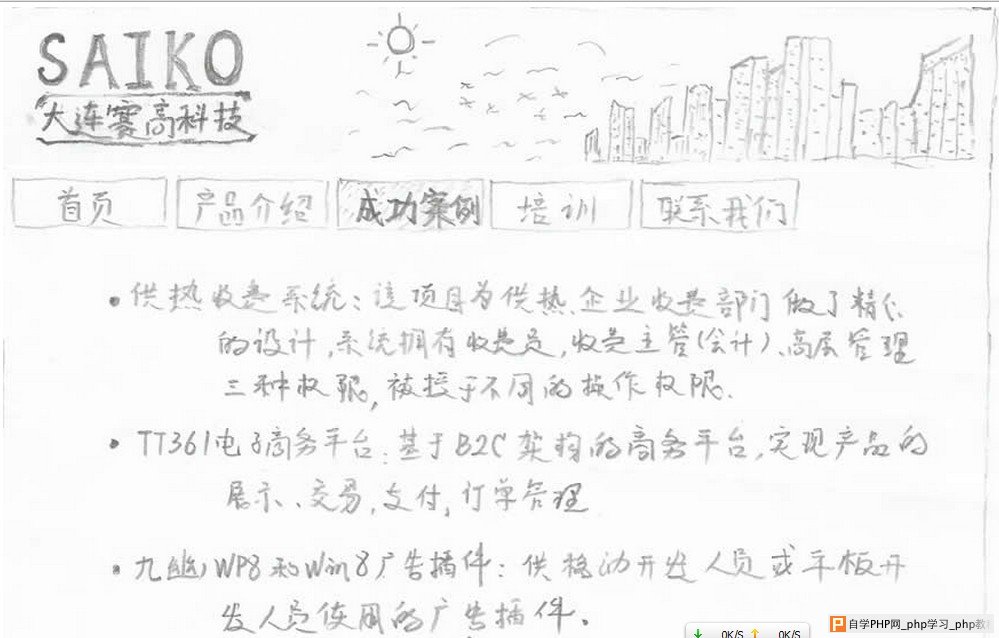 SAIKO
大连赛高科技
首页 产品介绍 成功案例 培训 联系我们
供热收费系统：该项目为供热企业收费部门做了精心
的设计，系统拥有收费员，收费主管(会计)、高层管理
三种权限，被授于不同的操作权限.
TT361电子商务平台：基于B2C架构的商务平台，实现产品的
展示、交易，支付，订单管理
九幽WP8和Win8广告插件：供移动开发人员或平板开
发人员使用的广告插件。
0K/S 0K/S
自学PHP网_php学习_php教